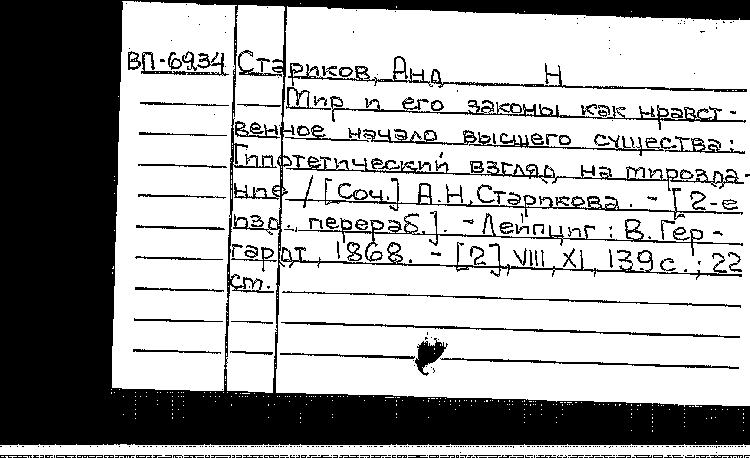 ВП-6934 Стариков, Анд Н
Мир и его законы как нравст-
венное начало высшего существа:
Гипотетический взгляд на мирозда-
ние / [Соч.] А.Н. Старикова. - [2-е
изд., перераб.]. - Лейпциг : В. Гер-
гардт, 1868. - [2], VIII, XI, 139 с. ; 22
см.